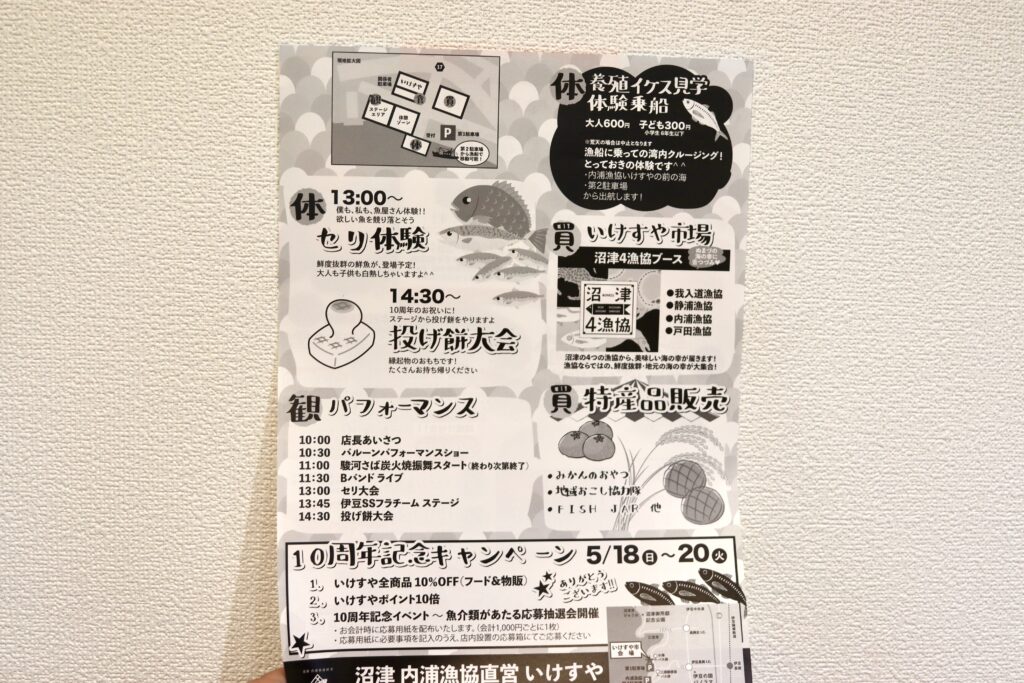 現地拡大図
17
関係者
駐車場
いけすや
ステージ
エリア
体験
ゾーン
買
受付
P 第1駐車場
体
第2駐車場
から漁船で
移動可能！
体 養殖イケス見学
体験乗船
大人600円 子ども300円
小学生6年生以下
※荒天の場合は中止となります
漁船に乗っての湾内クルージング！
とっておきの体験です^^
・内浦漁協いけすやの前の海
・第2駐車場
から出航します！
体 13:00～
僕も、私も、魚屋さん体験！！
欲しい魚を競り落とそう
セリ体験
鮮度抜群の鮮魚が、登場予定！
大人も子供も白熱しちゃいますよ^^
14:30～
10周年のお祝いに！
ステージから投げ餅をやりますよ
投げ餅大会
縁起物のおもちです！
たくさんお持ち帰りください
買 いけすや市場
沼津4漁協ブース
ぬまづの
海の幸に
沼津
4漁協
●我入道漁協
●静浦漁協
●内浦漁協
●戸田漁協
沼津の4つの漁協から、美味しい海の幸が届きます！
漁協ならではの、鮮度抜群・地元の海の幸が大集合！
観 パフォーマンス
10:00 店長あいさつ
10:30 バルーンパフォーマンスショー
11:00 駿河さば炭火焼振舞スタート（終わり次第終了）
11:30 Bバンド ライブ
13:00 セリ大会
13:45 伊豆SSフラチーム ステージ
14:30 投げ餅大会
買 特産品販売
・みかんのおやつ
・地域おこし協力隊
・FISH JAR 他
10周年記念キャンペーン 5/18日～20火
1、 いけすや全商品 10%OFF（フード&物販）
2、 いけすやポイント10倍
3、 10周年記念イベント～魚介類があたる応募抽選会開催
・お会計時に応募用紙を配布いたします。（会計1,000円ごとに1枚）
・応募用紙に必要事項を記入のうえ、店内設置の応募箱にてご応募ください
ありがとう
ございます!!
沼津御用邸
記念公園
いけすや市
会場
第1駐車場
P
伊豆の国
沼津 内浦漁協直営 いけすや